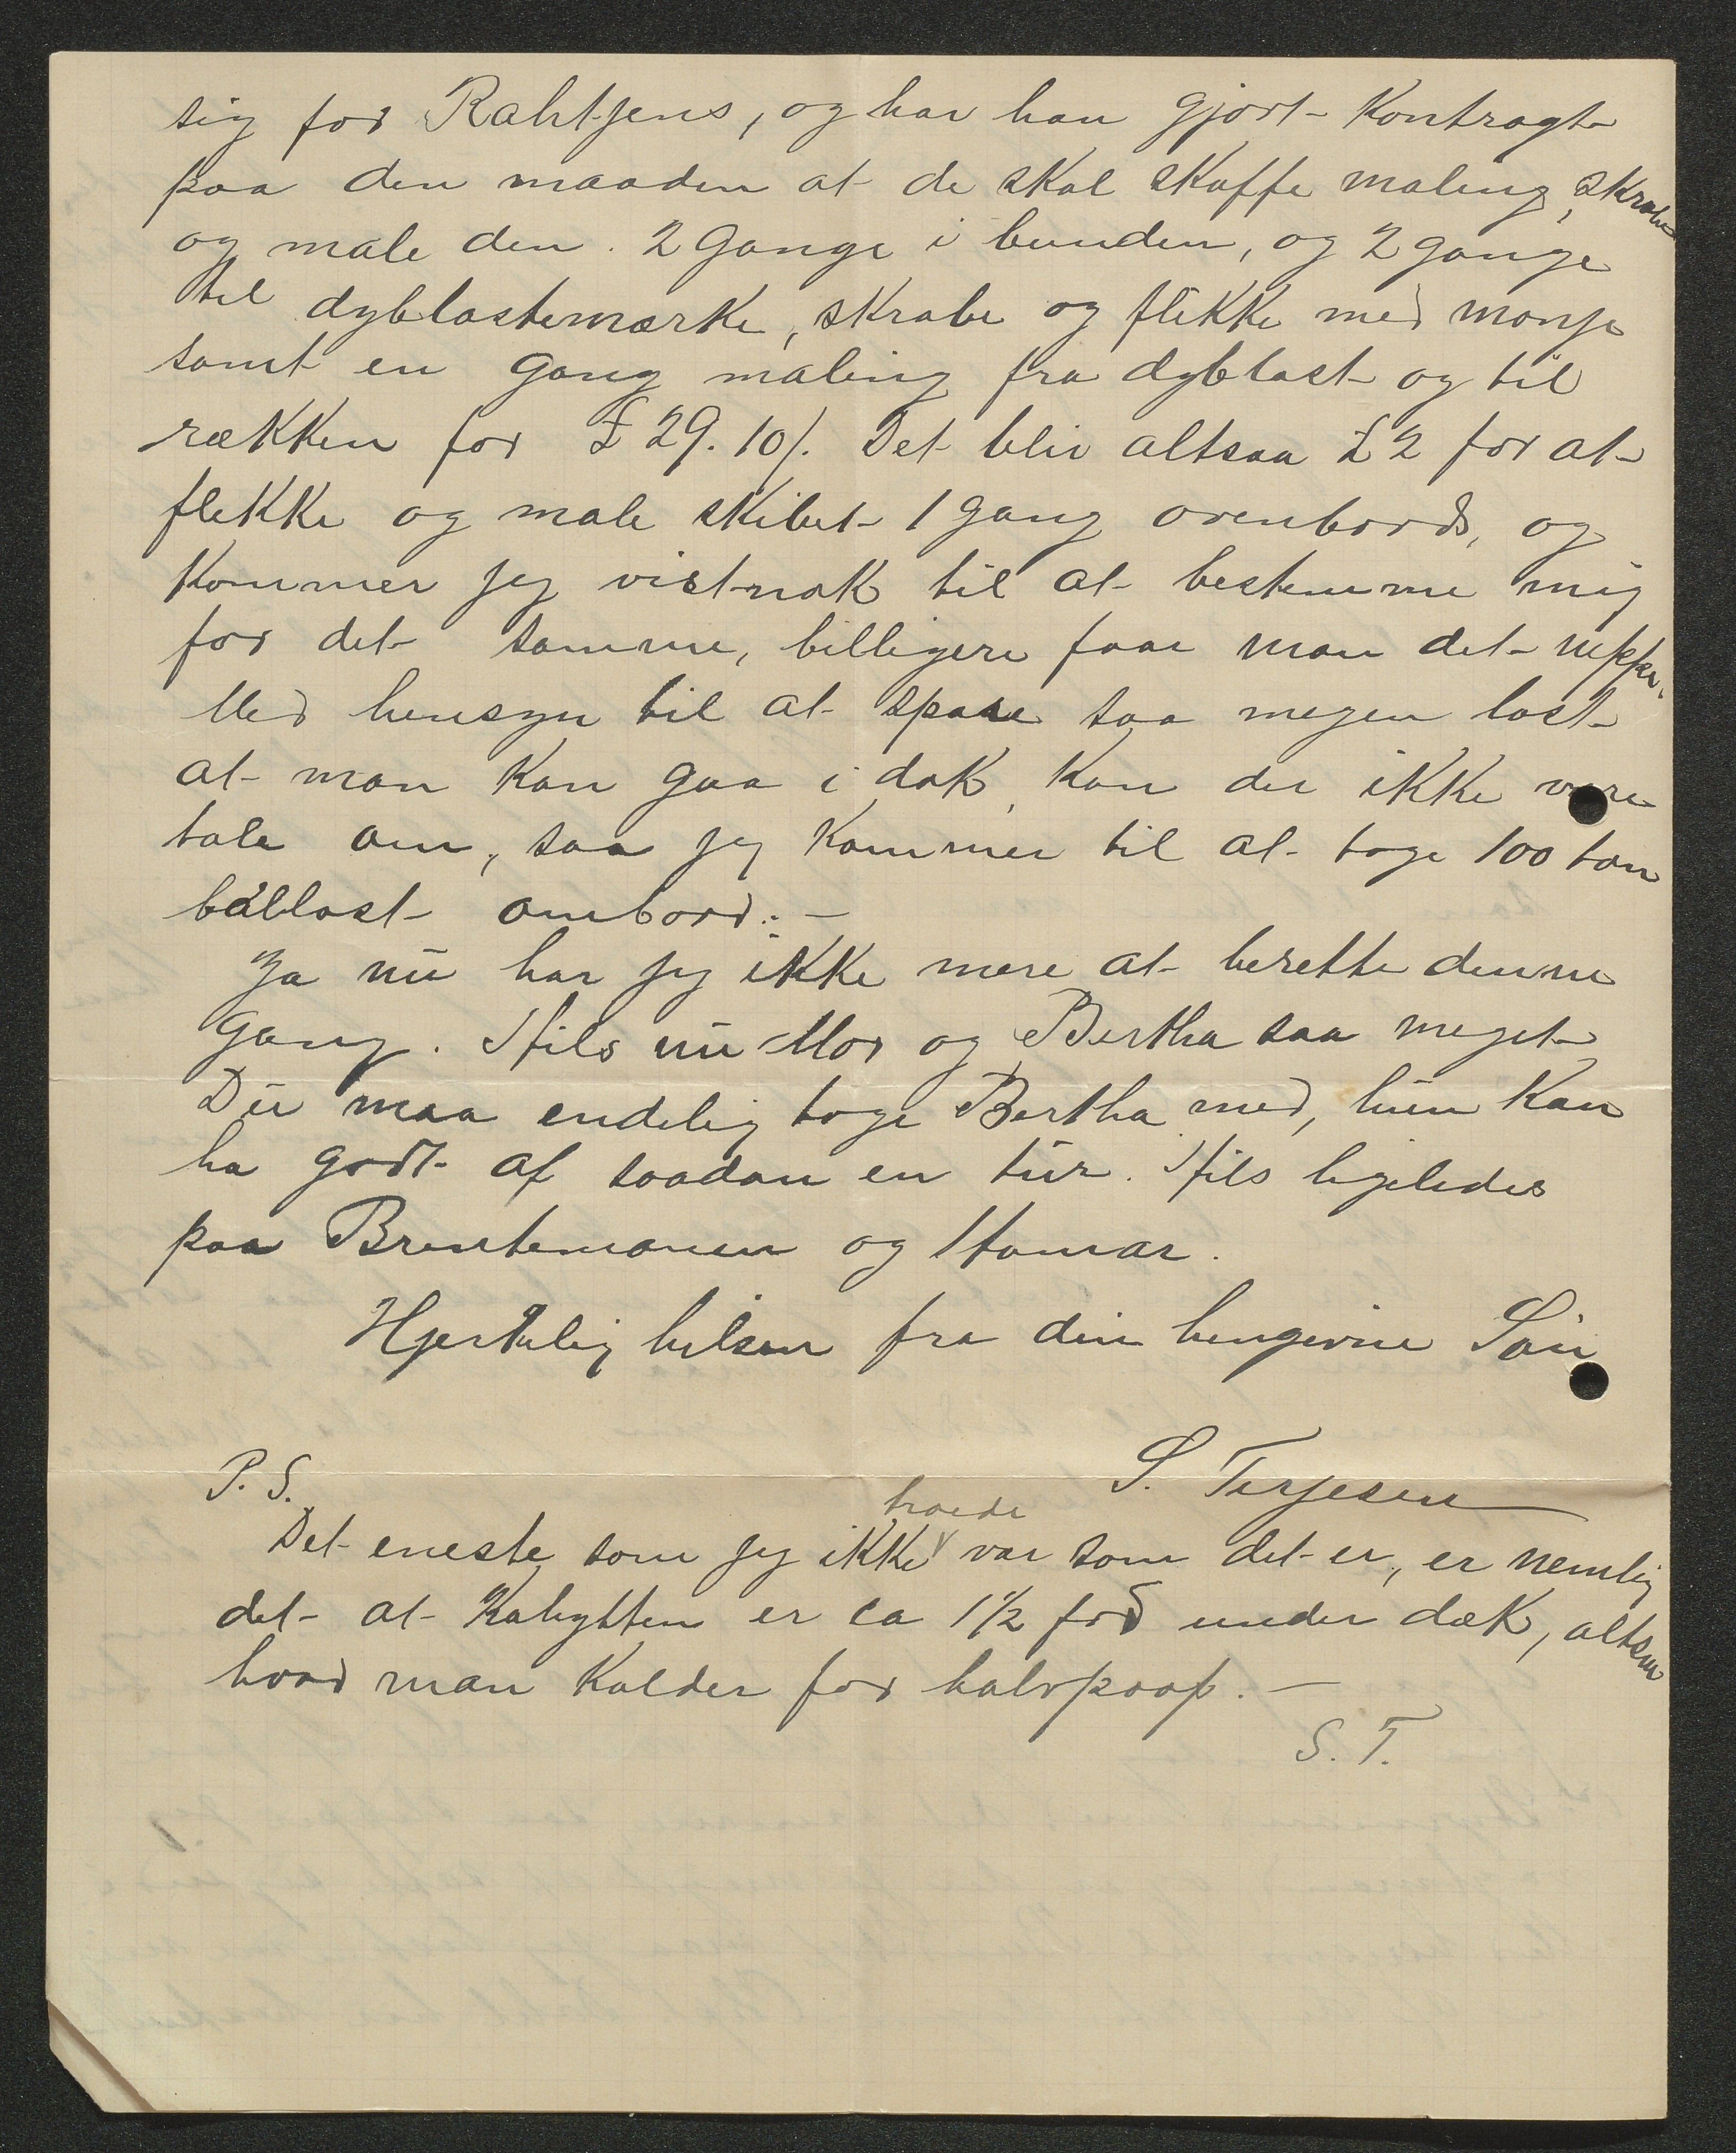 sig for Rahtjens, og har han gjort Kontragt
paa den maaden at de skal skaffe maling, skrabe
og male den 2 Gange i bunden, og 2 gange
til dyblastemærke, skrabe og flekke med mønje
samt en Gang maling fra dyblast og til
rækken for £ 29.10/. Det blir altsaa £ 2 for at
flekke og male skibet 1 gang ovenbords, og
Kommer jeg vistnok til at bestemme mig
for det samme, billigere faar man det neppe.
Med hensyn til at spare saa megen last
at man Kan gaa i dok, kan der ikke være
tale om, saa jeg Kommer til at tage 100 ton
ballast ombord. —
Ja nu har jeg ikke mere at berette denne
Gang. Hils nu Mor og Bertha saa meget
Du maa endelig tage Bertha med, hun Kan
ha godt af saadan en tur. Hils ligeledes
paa Brentemoen og Hamar.
Hjertelig hilsen fra din hengivne Søn
S. Terjesen
P. S.
troede
Det eneste som jeg ikke var som det er, er nemlig
det at Kahytten er ca 1½ fod under dæk, altsaa
hvad man Kalder for halvpoop. —
S. T.